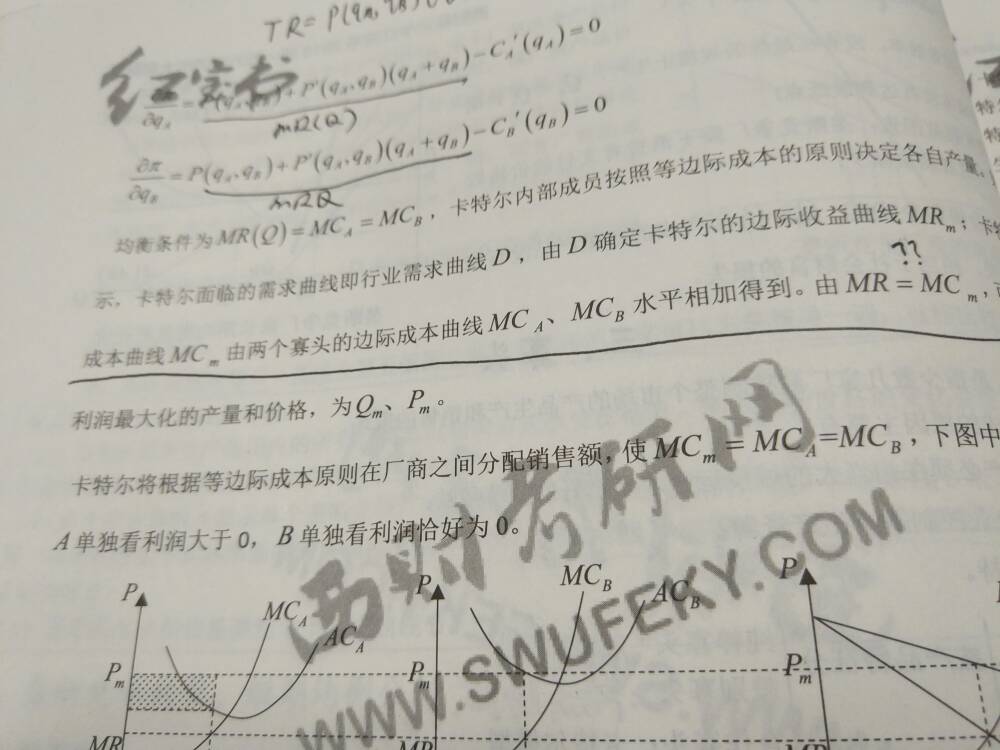 TR=P(qA,qB)
红宝书
∂qA = P(qA、qB)+P'(qA、qB)(qA+qB)−CA'(qA)=0
MR(Q)
∂π/∂qB = P(qA、qB)+P'(qA、qB)(qA+qB)−CB'(qB)=0
MRQ
均衡条件为MR(Q)=MCA=MCB，卡特尔内部成员按照等边际成本的原则决定各自产量。
示，卡特尔面临的需求曲线即行业需求曲线D，由D确定卡特尔的边际收益曲线MRm；卡特
??
成本曲线MCm由两个寡头的边际成本曲线MCA、MCB水平相加得到。由MR=MCm，
利润最大化的产量和价格，为Qm、Pm。
卡特尔将根据等边际成本原则在厂商之间分配销售额，使MCm=MCA=MCB，下图中
A单独看利润大于0，B单独看利润恰好为0。
西财考研网
WWW.SWUFEKY.COM
P MCA ACA P MCB ACB P
Pm Pm Pm
MR MR MR